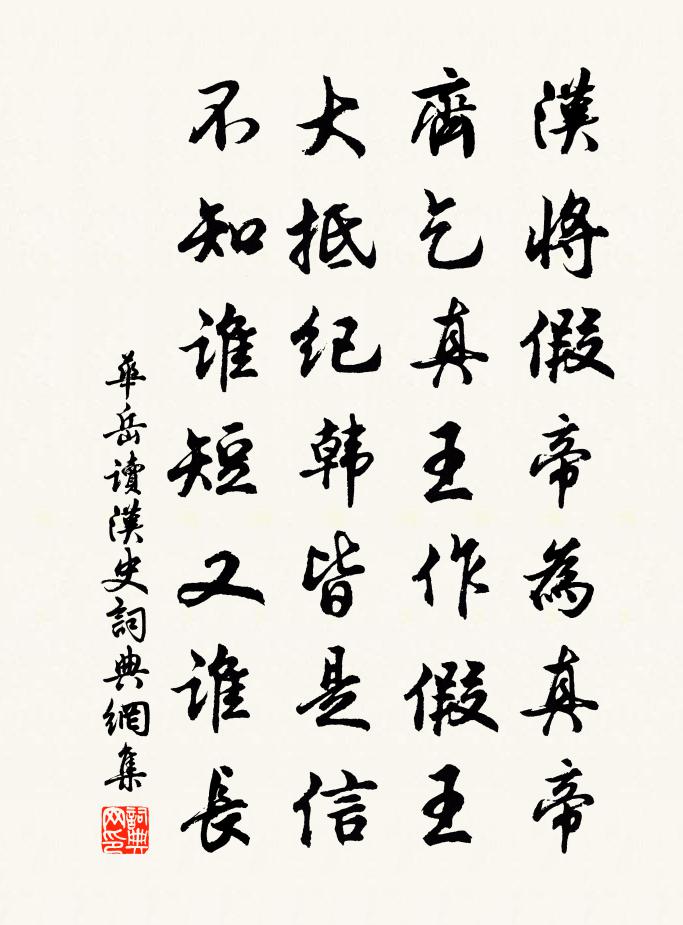 漢將假帝為真帝
齊乞真王作假王
大抵纪韩皆是信
不知谁短又谁長
華岳讀漢史詞典網集
詞典网印